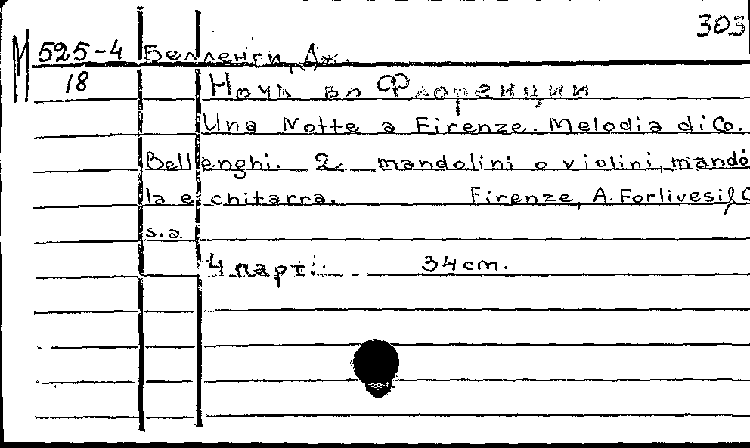 303
M 525-4 Белленги, Дж.
18 Ночь во Флоренции
Una Notte a Firenze. Melodia di Co.
Bellenghi. 2 mandolini o violini, mando
la e chitarra. Firenze, A. Forlivesi & C
s.a.
4 парт. 34 cm.